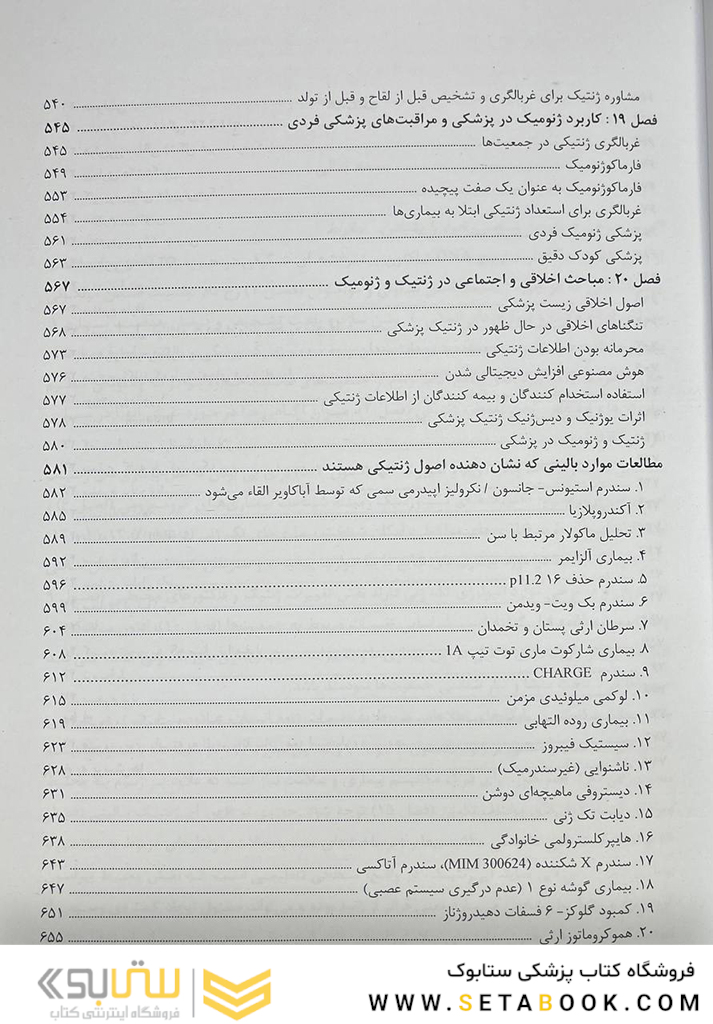 مشاوره ژنتیک برای غربالگری و تشخیص قبل از لقاح و قبل از تولد ۵۴۰
فصل ۱۹ : کاربرد ژنومیک در پزشکی و مراقبت‌های پزشکی فردی ۵۴۵
غربالگری ژنتیکی در جمعیت‌ها ۵۴۵
فارماکوژنومیک ۵۴۹
فارماکوژنومیک به عنوان یک صفت پیچیده ۵۵۳
غربالگری برای استعداد ژنتیکی ابتلا به بیماری‌ها ۵۵۴
پزشکی ژنومیک فردی ۵۶۱
پزشکی کودک دقیق ۵۶۳
فصل ۲۰ : مباحث اخلاقی و اجتماعی در ژنتیک و ژنومیک ۵۶۷
اصول اخلاقی زیست پزشکی ۵۶۷
تنگناهای اخلاقی در حال ظهور در ژنتیک پزشکی ۵۶۸
محرمانه بودن اطلاعات ژنتیکی ۵۷۳
هوش مصنوعی افزایش دیجیتالی شدن ۵۷۶
استفاده استخدام کنندگان و بیمه کنندگان از اطلاعات ژنتیکی ۵۷۷
اثرات یوژنیک و دیس‌ژنیک ژنتیک پزشکی ۵۷۸
ژنتیک و ژنومیک در پزشکی ۵۸۰
مطالعات موارد بالینی که نشان دهنده اصول ژنتیکی هستند ۵۸۱
۱. سندرم استیونس- جانسون / نکرولیز اپیدرمی سمی که توسط آباکاویر القاء می‌شود ۵۸۲
۲. آکندروپلازیا ۵۸۵
۳. تحلیل ماکولار مرتبط با سن ۵۸۹
۴. بیماری آلزایمر ۵۹۲
۵. سندرم حذف ۱۶ p11.2 ۵۹۶
۶. سندرم بک ویت- ویدمن ۵۹۹
۷. سرطان ارثی پستان و تخمدان ۶۰۴
۸. بیماری شارکوت ماری توت تیپ 1A ۶۰۸
۹. سندرم CHARGE ۶۱۲
۱۰. لوکمی میلوئیدی مزمن ۶۱۵
۱۱. بیماری روده التهابی ۶۱۹
۱۲. سیستیک فیبروز ۶۲۳
۱۳. ناشنوایی (غیرسندرمیک) ۶۲۸
۱۴. دیستروفی ماهیچه‌ای دوشن ۶۳۱
۱۵. دیابت تک ژنی ۶۳۵
۱۶. هایپرکلسترولمی خانوادگی ۶۳۸
۱۷. سندرم X شکننده (MIM 300624)، سندرم آتاکسی ۶۴۳
۱۸. بیماری گوشه نوع ۱ (عدم درگیری سیستم عصبی) ۶۴۷
۱۹. کمبود گلوکز- ۶ فسفات دهیدروژناز ۶۵۱
۲۰. هموکروماتوز ارثی ۶۵۵
فروشگاه کتاب پزشکی ستابوک
WWW.SETABOOK.COM
ستابوک
فروشگاه اینترنتی کتاب